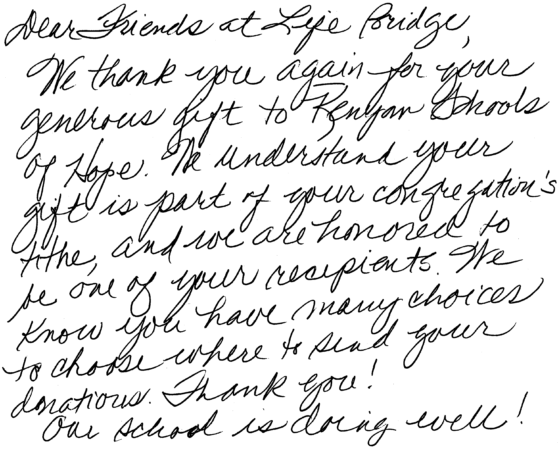 Dear Friends at Life Bridge,
We thank you again for your
generous gift to Kenyan Schools
of Hope. We understand your
gift is part of your congregation's
tithe, and we are honored to
be one of your recipients. We
know you have many choices
to choose where to send your
donations. Thank you!
Our school is doing well!